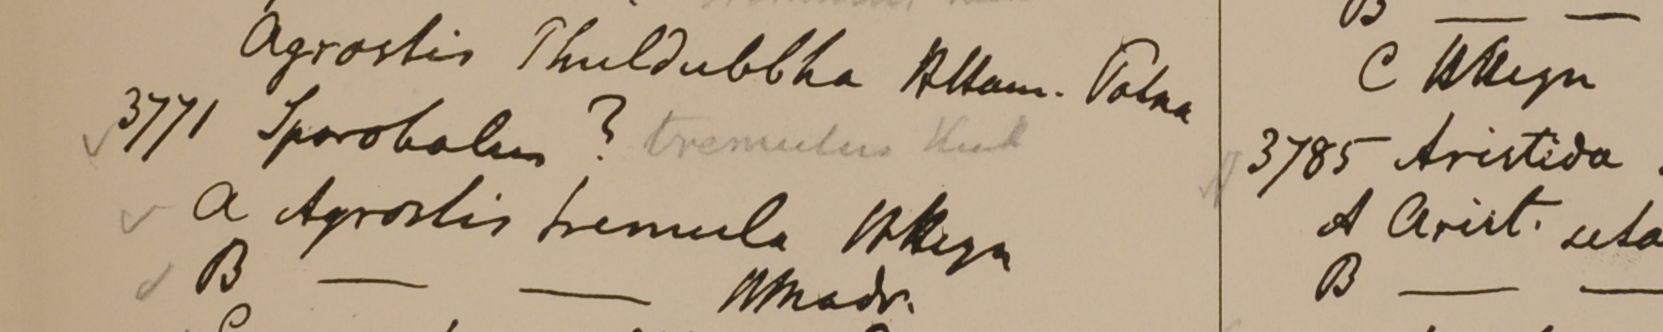 Agrostis Thuldubbha HHam. Patna
3771 Sporobolus ? tremulus Kunth
a Agrostis tremula HHeyn
B — — HMadr.
C
B — —
C HHeyn
3785 Aristida
A Arist. seta
B — —